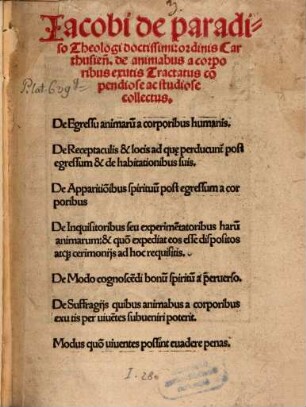 Iacobi de paradi-
so Theologi doctissimi: ordinis Car
thusieñ. de animabus a corpo
ribus exutis Tractatus cō
pendiose ac studiose
collectus.
De Egressu animarū a corporibus humanis.
De Receptaculis & locis ad quę perducunt̃ post
egressum & de habitationibus suis.
De Apparitiōibus spirituū post egressum a cor
poribus
De Inquisitoribus seu experimētatoribus harū
animarum: & quō expediat eos esse dispositos
atq̃ cerimonijs ad hoc requisitis.
De Modo cognoscēdi bonū spiritū a peruerso.
De Suffragijs quibus animabus a corporibus
exutis per viuētes subueniri poterit.
Modus quō viuentes possint euadere penas.
I-28